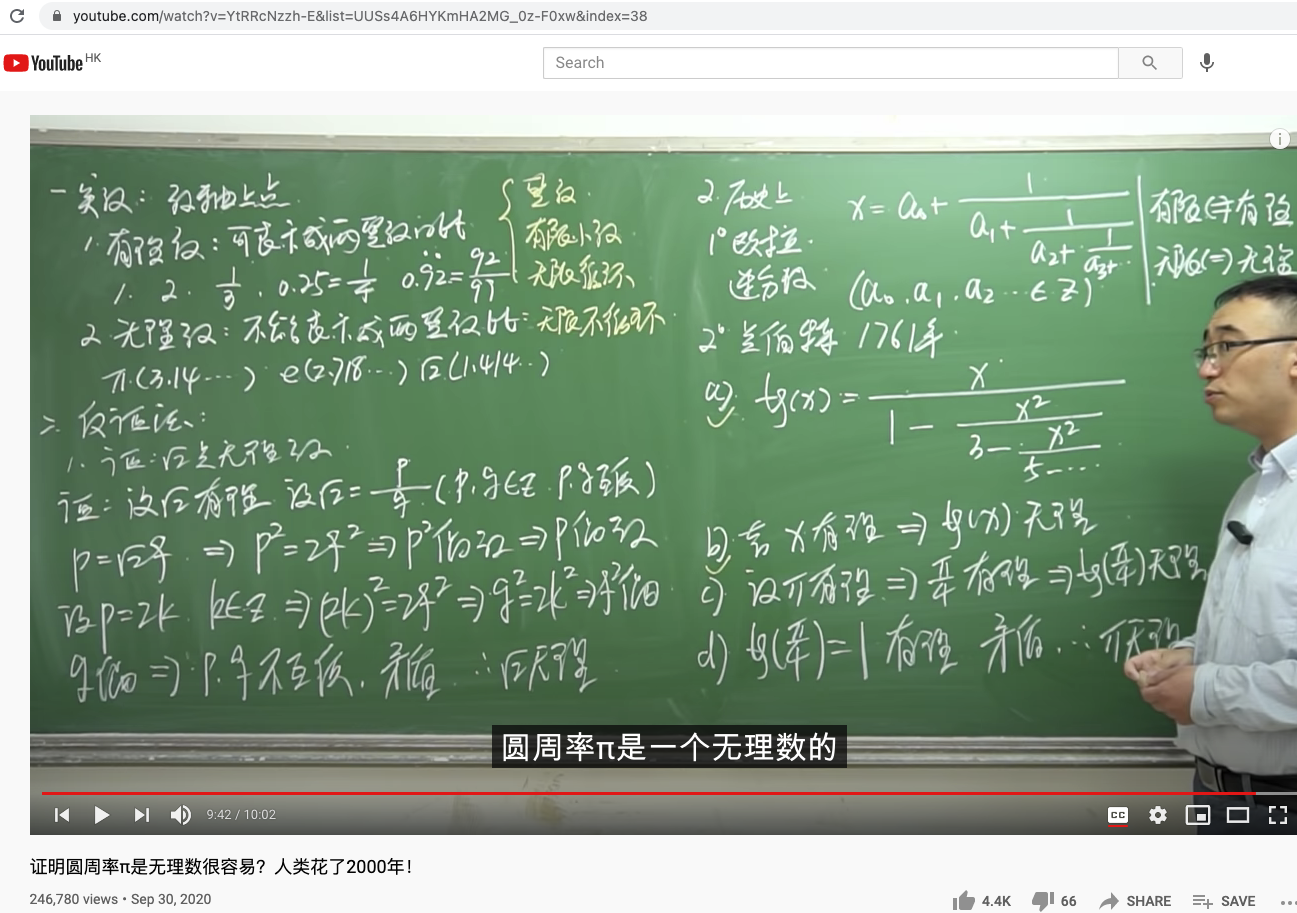 youtube.com/watch?v=YtRRcNzzh-E&list=UUSs4A6HYKmHA2MG_0z-F0xw&index=38
YouTube HK
Search
一 实数：数轴上点
1. 有理数：可表示成两整数的比
{ 整数
有限小数
无限循环
1. 2. 1/3 . 0.25=1/4 0.9̇2̇=92/99
2. 无理数：不能表示成两整数比：无限不循环
π.(3.14…) e(2.718…) √2(1.414…)
二. 反证法：
1. 证：√2是无理数
证：设√2有理 设√2=p/q (p.q∈Z p.q互质)
p=√2q ⇒ p²=2q² ⇒ p²偶数 ⇒ p偶数
设p=2k k∈Z ⇒ (2k)²=2q² ⇒ q²=2k² ⇒ q²偶
q偶 ⇒ p.q不互质. 矛盾 ∴√2无理
2. 历史上
1° 欧拉.
连分数
x = a₀ + 1/(a₁ + 1/(a₂ + 1/(a₃+…
(a₀.a₁.a₂…∈Z)
有限⇔有理
无限⇔无理
2° 兰伯特 1761年
a). tg(x) = x/(1 − x²/(3 − x²/(5−…
b). 若 x有理 ⇒ tg(x)无理
c) 设π有理 ⇒ π/4有理 ⇒ tg(π/4)无理
d) tg(π/4)=1 有理 矛盾. ∴π无理
圆周率π是一个无理数的
9:42 / 10:02
CC
证明圆周率π是无理数很容易？人类花了2000年！
246,780 views • Sep 30, 2020
4.4K 66 SHARE SAVE